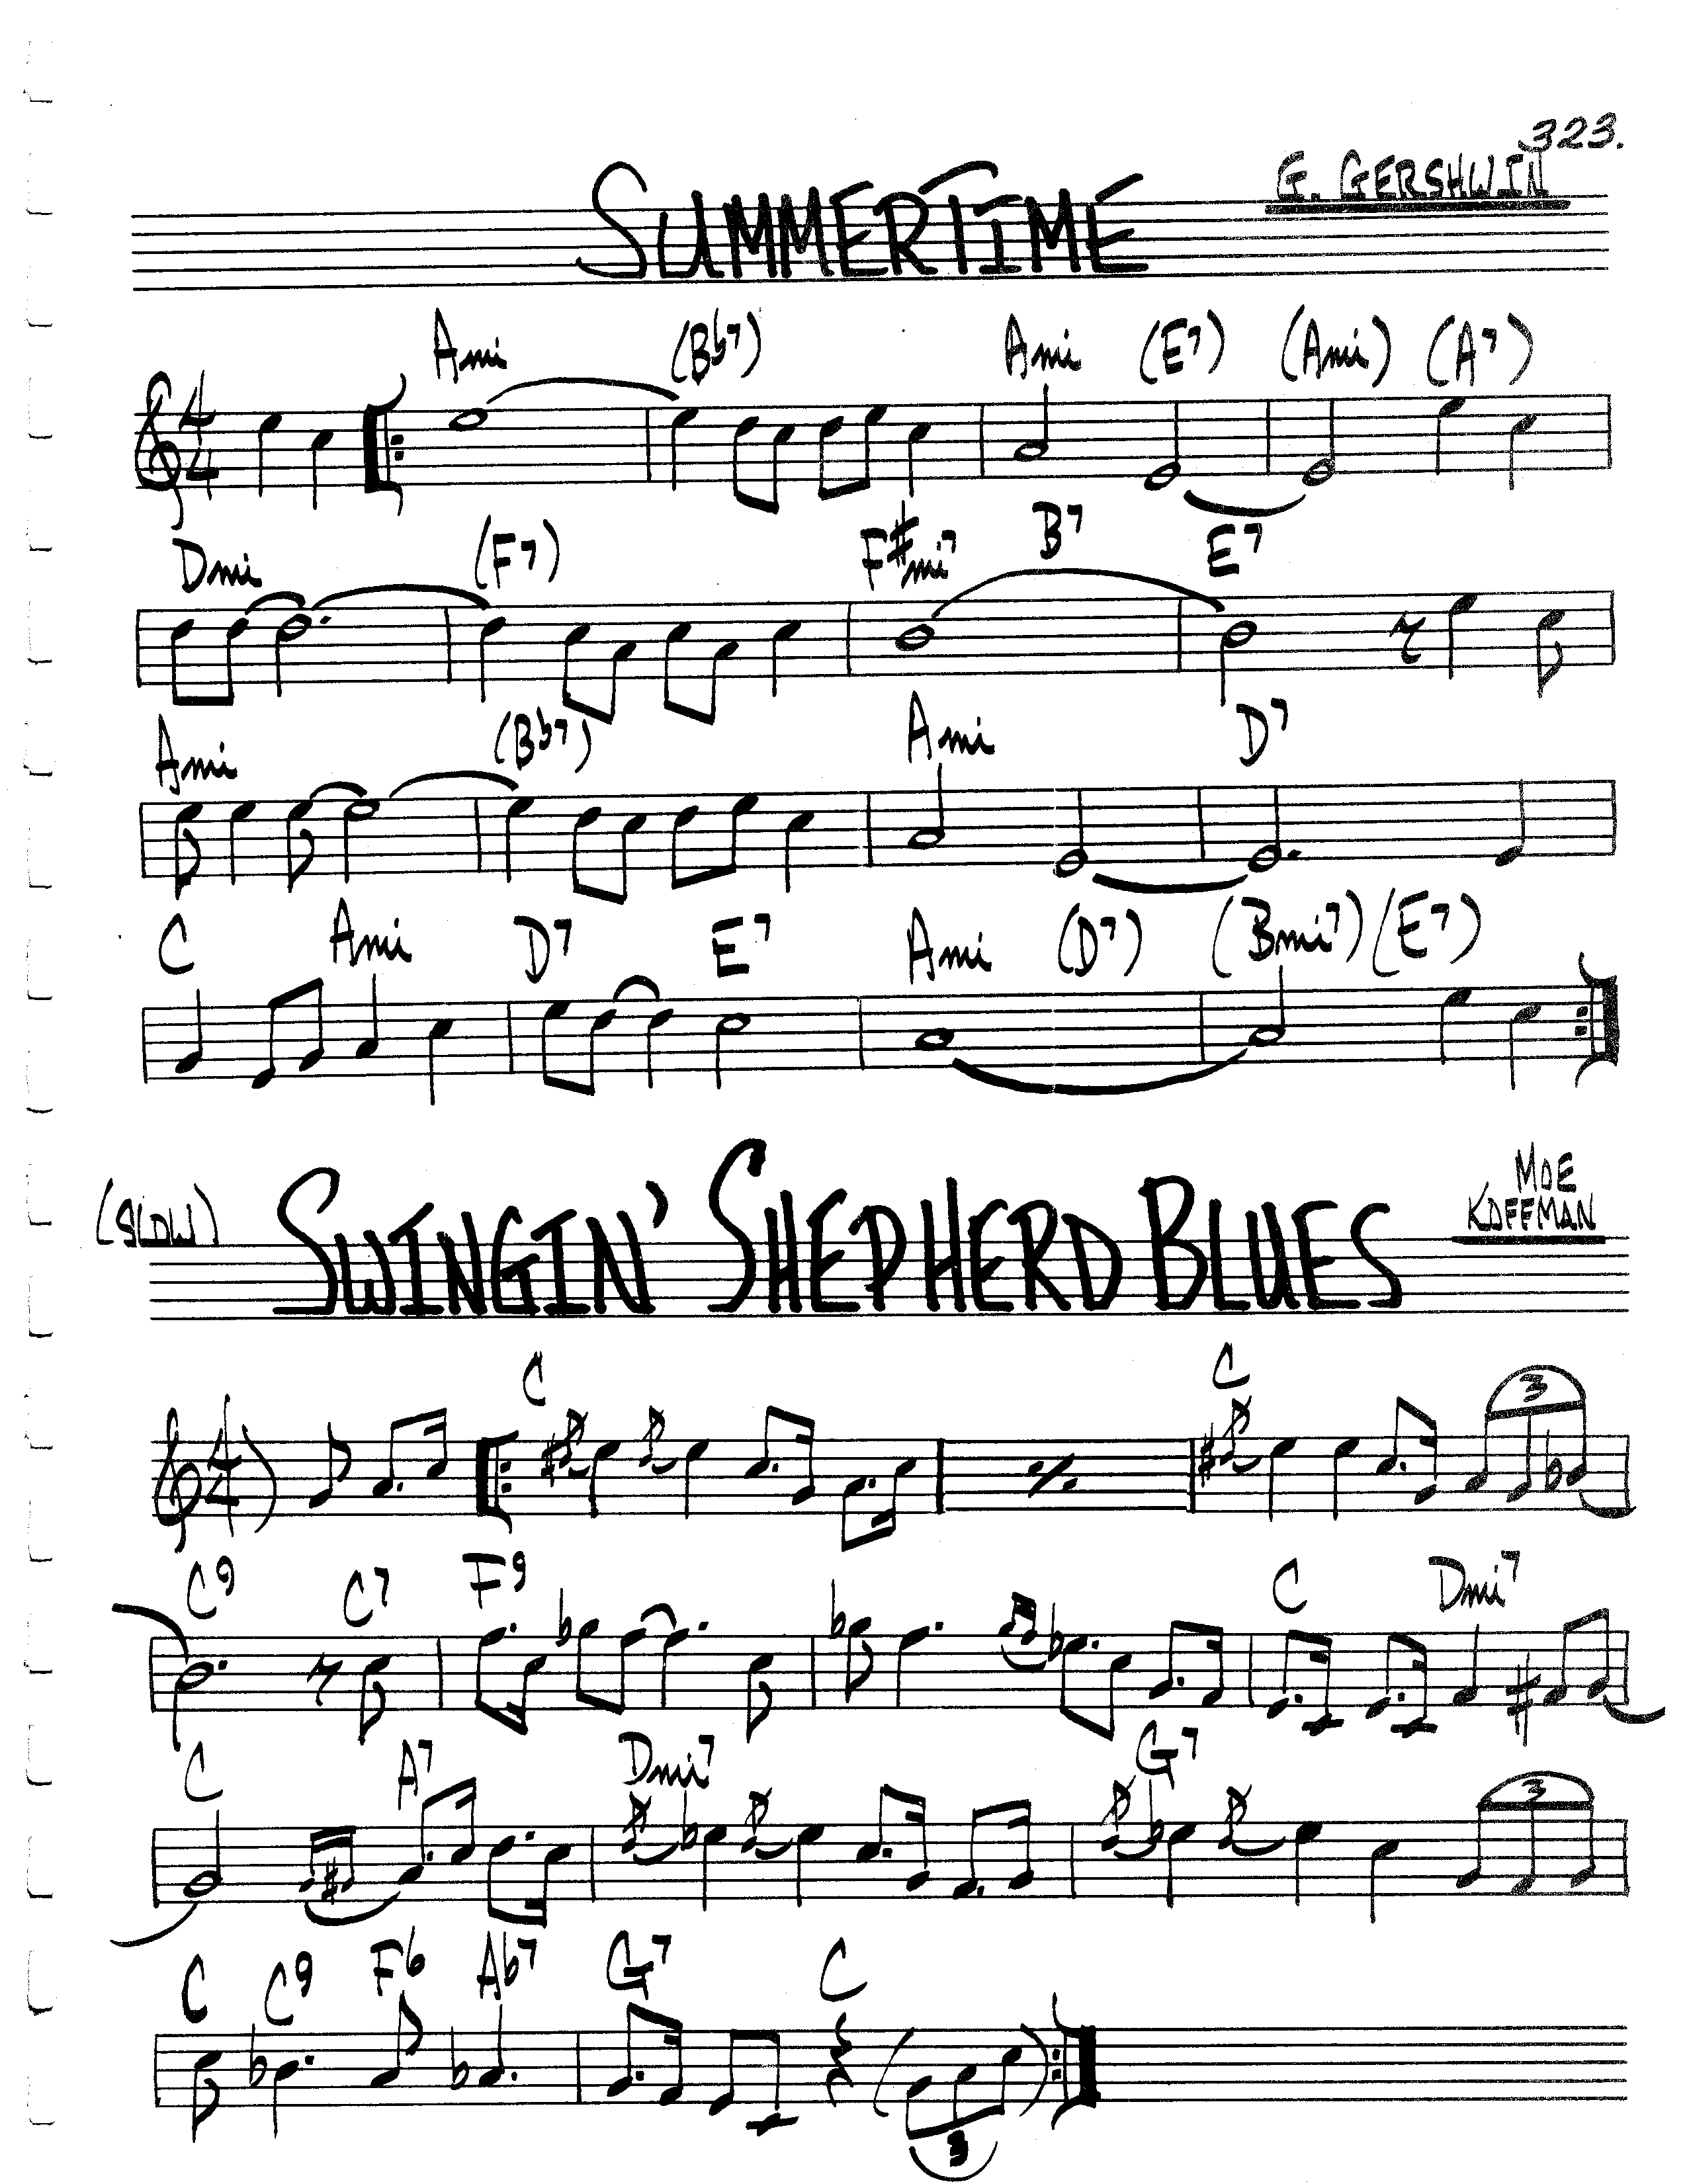 323.
SUMMERTIME
G. GERSHWIN
Ami (Bb7) Ami (E7) (Ami) (A7)
4
4
Dmi (F7) F#mi7 B7 E7
Ami (Bb7) Ami D7
C Ami D7 E7 Ami (D7) (Bmi7) (E7)
(SLOW) SWINGIN' SHEPHERD BLUES
MOE
KOFFMAN
C C
4
4
3
C9 C7 F9 C Dmi7
C A7 Dmi7 G7
3
C C9 F6 Ab7 G7 C
3